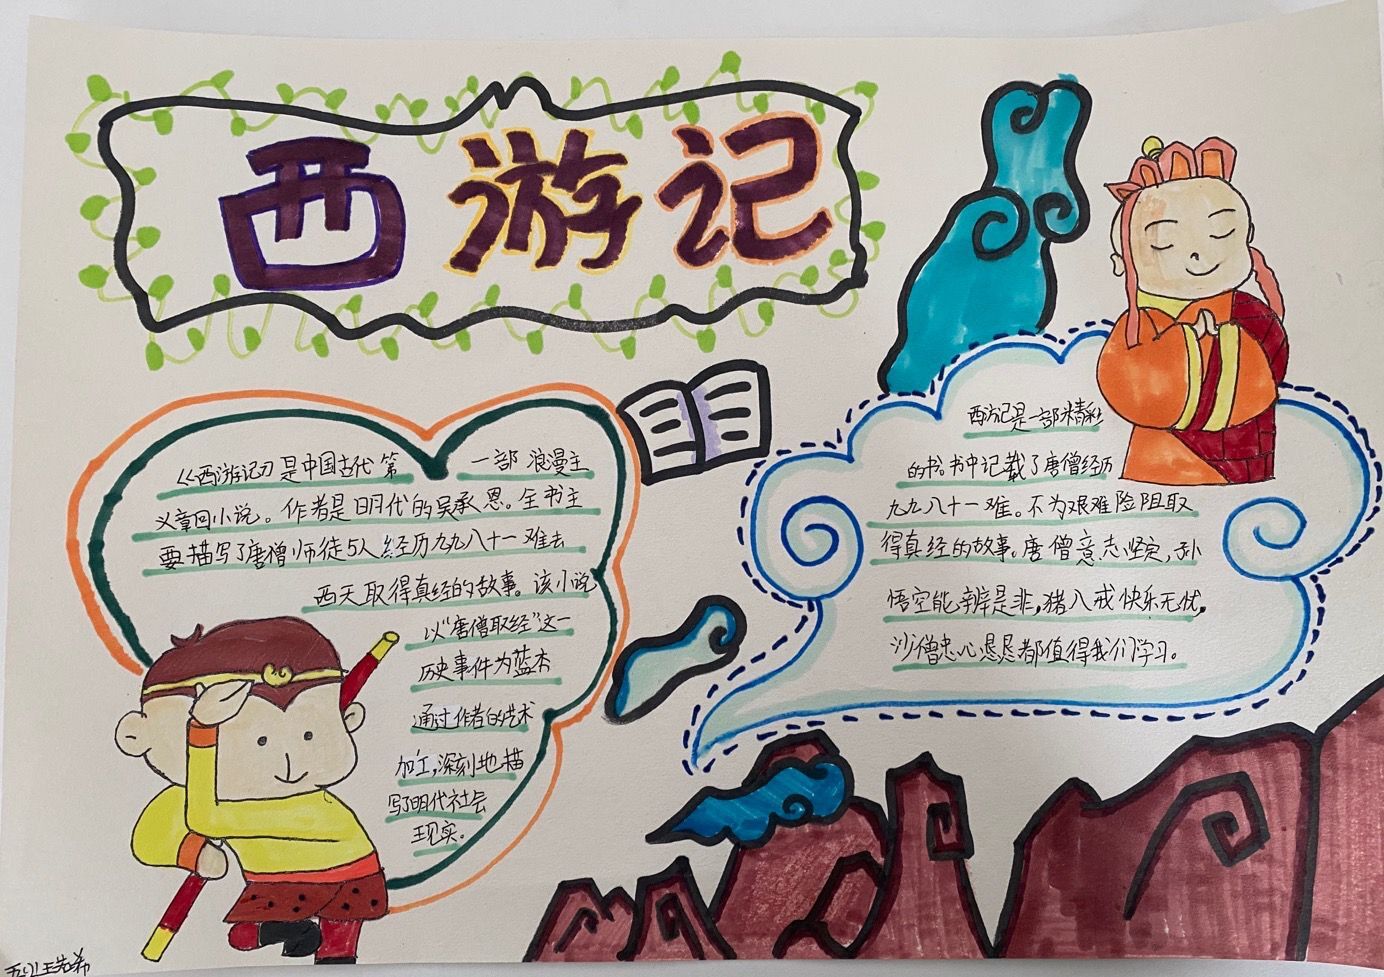 西游记
《西游记》是中国古代第一部浪漫主
义章回小说。作者是明代的吴承恩。全书主
要描写了唐僧师徒5人经历九九八十一难去
西天取得真经的故事。该小说
以“唐僧取经”这一
历史事件为蓝本
通过作者的艺术
加工,深刻地描
写了明代社会
现实。
西游记是一部精彩
的书。书中记载了唐僧经历
九九八十一难。不为艰难险阻取
得真经的故事。唐僧意志坚定,孙
悟空能辨是非,猪八戒快乐无忧,
沙僧忠心恳恳都值得我们学习。